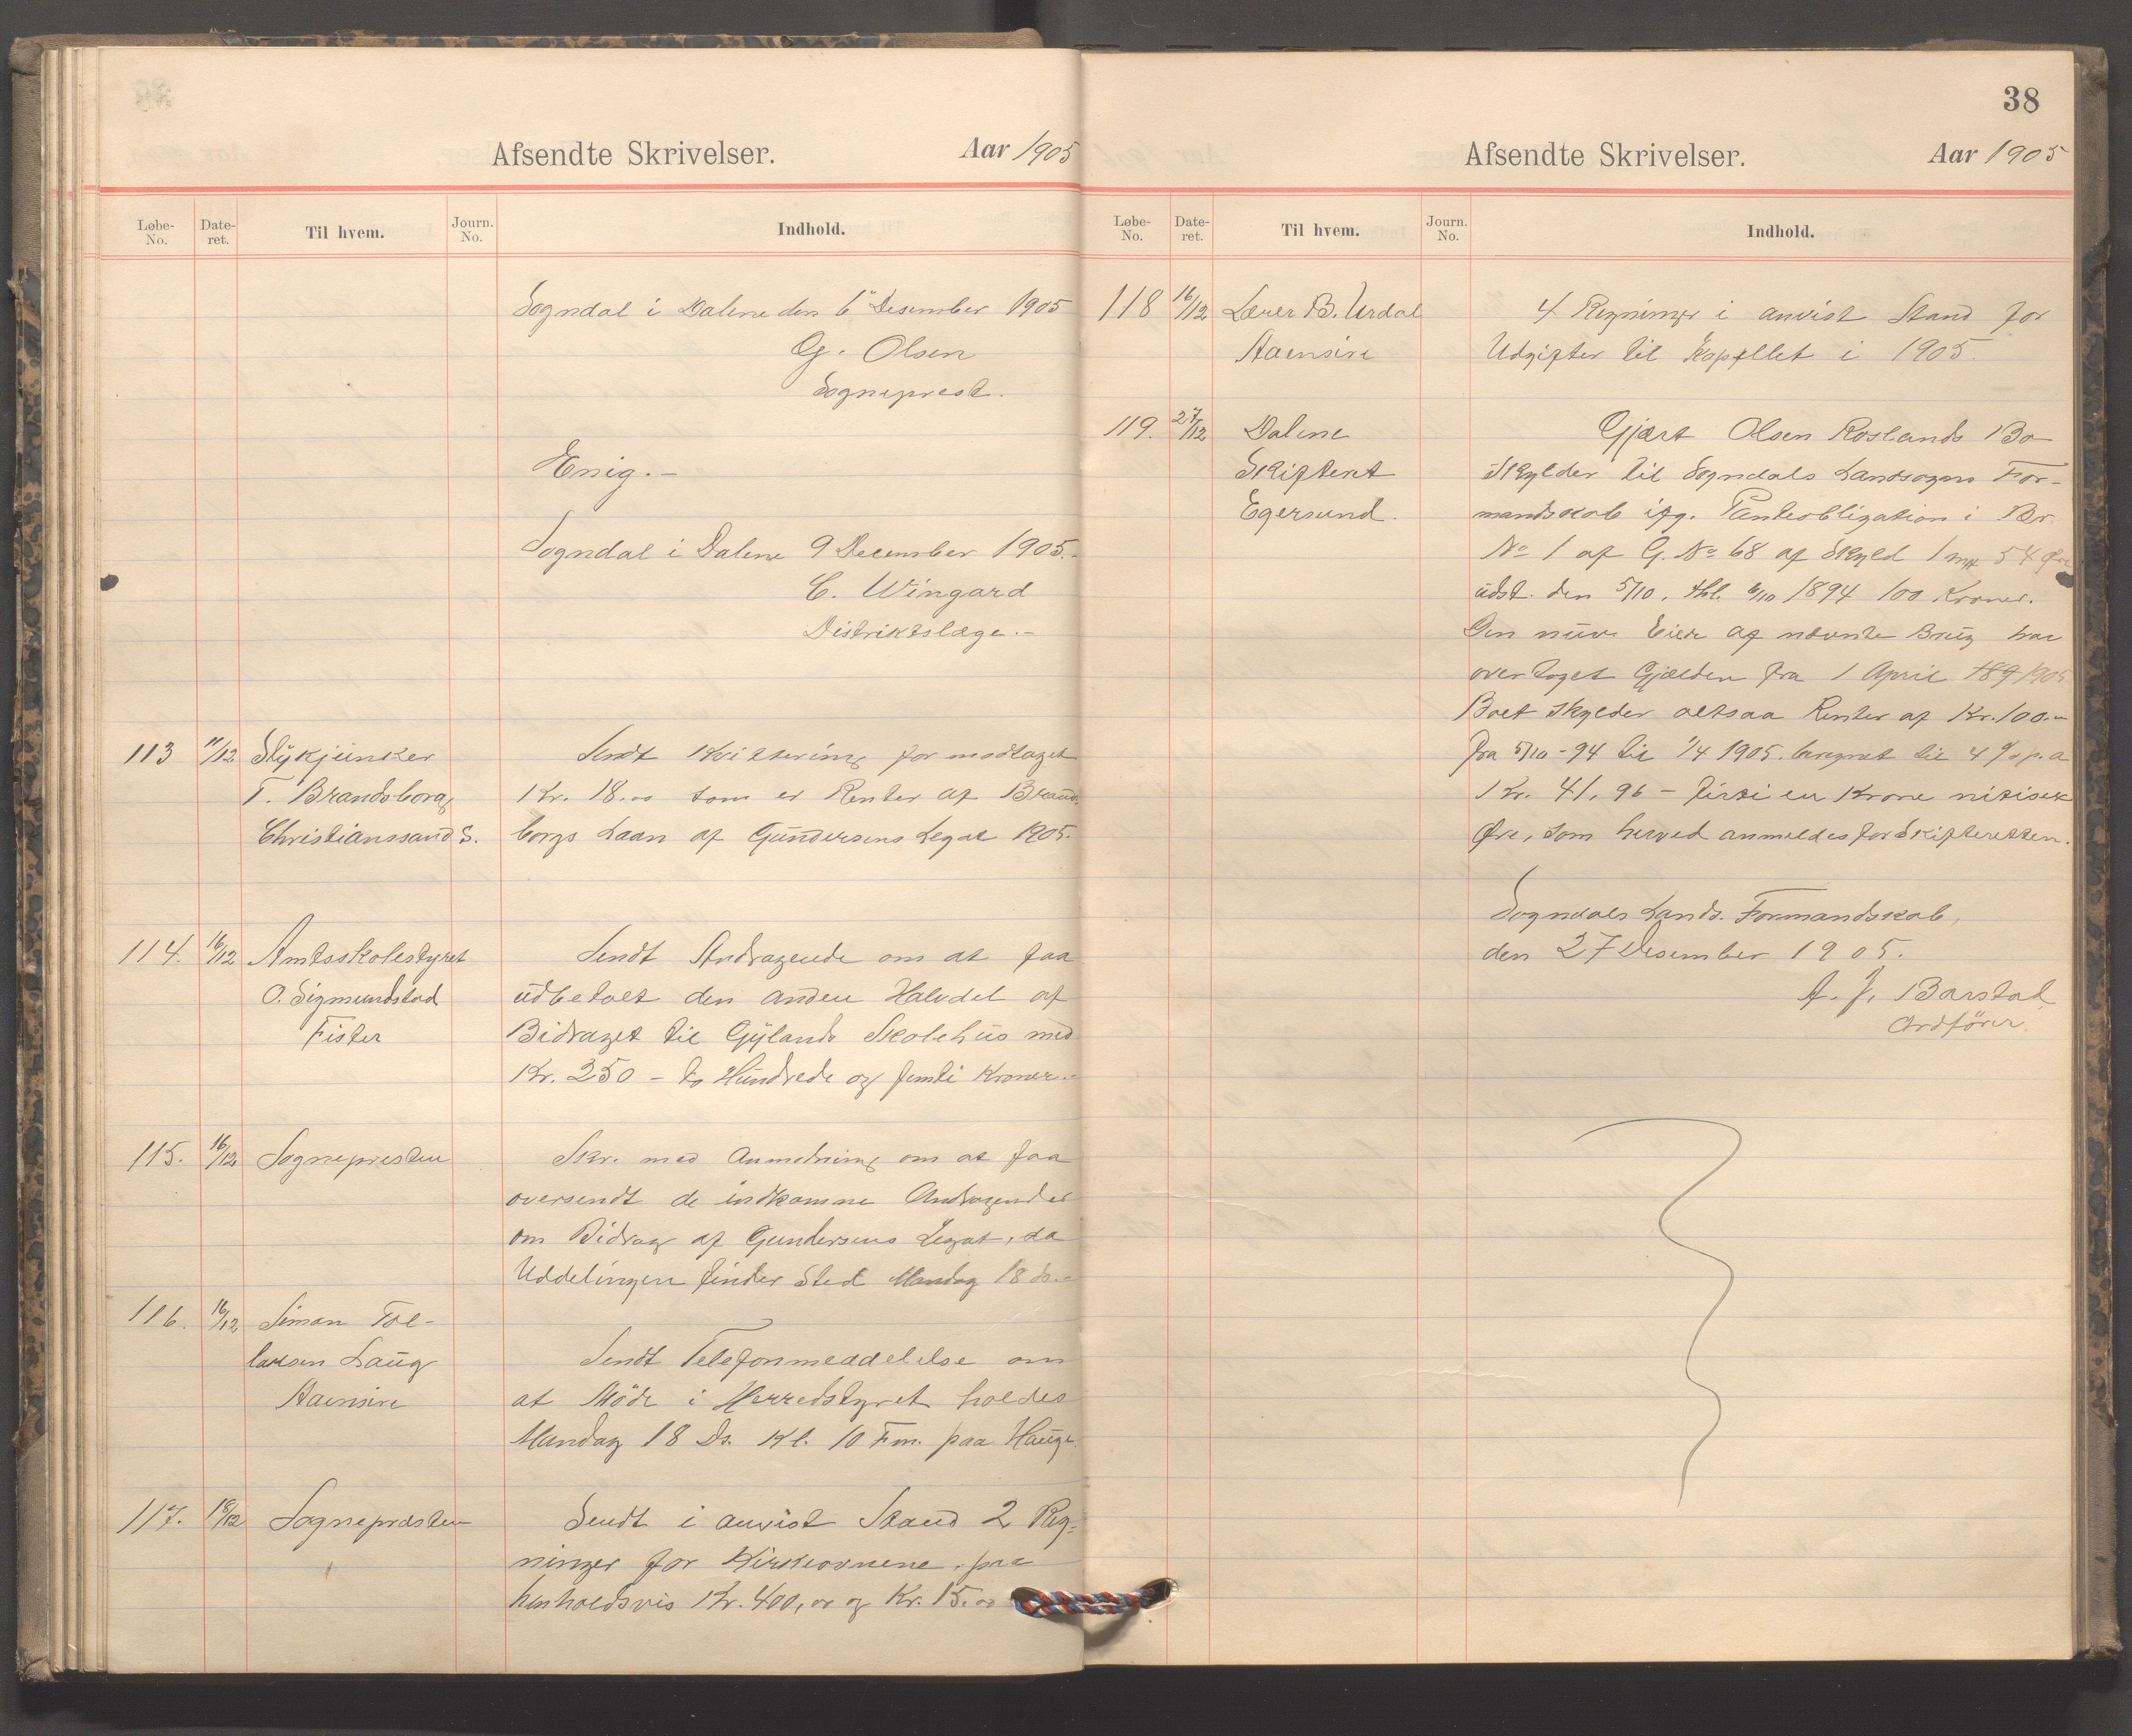 Afsendte Skrivelser.
Aar 1905
Løbe-No.
Date-ret.
Til hvem.
Journ. No.
Indhold.
Sogndal i Dalene den 6 Desember 1905
G. Olsen
Sogneprest.
Enig.-
Sogndal i Dalene 9 December 1905.
C. Wingard
Distriktslæge.-
113 11/12 Stykjunker
T. Brandsborg
Christianssand S.
Sendt Kvittering for modtaget
Kr. 18.00 som er Renter af Brands-
borgs Laan af Gundersens Legat 1905.
114. 16/12 Amtsskolestyret
O. Sigmundstad
Fister
Sendt Andragende om at faa
udbetalt den anden Halvdel af
Bidraget til Gylands Skolehus med
Kr. 250 - to Hundrede og femti Kroner.-
115. 16/12 Sognepresten
Skr. med Anmodning om at faa
oversendt de indkomne Andragender
om Bidrag af Gundersens Legat, da
Uddelingen finder Sted Mandag 18 ds.-
116. 16/12 Simon Tol-
laksen Haug
Aaensire
Sendt Telefonmeddelelse om
at Møde i Herredstyret holdes
Mandag 18 Ds. Kl. 10 Fm. paa Hauge
117. 18/12 Sognepræsten
Sendt i anvist Stand 2 Reg-
ninger for Kirkeovnene, paa
henholdsvis Kr. 400,00 og Kr. 15.00
38
Afsendte Skrivelser.
Aar 1905
Løbe-No.
Date-ret.
Til hvem.
Journ. No.
Indhold.
118 16/12 Lærer B. Urdal
Aaensire
4 Regninger i anvist Stand for
Udgifter til Kapellet i 1905.
119. 27/12 Dalene
Skifteret
Egersund.
Gjert Olsen Roslands Bo
skylder til Sogndals Landsogns For-
mandskab ifg. Panteobligation i Br.
No 1 af G. No 68 af Skyld 1 mk 54 Øre
udst. den 5/10, thl. 6/10 1894 100 Kroner.
Den nuv. Eier af nævnte Brug har
overtaget Gjælden fra 1 April 189 1905
Boet skylder altsaa Renter af Kr. 100.-
fra 5/10-94 til 1/4 1905. beregnet til 4 % p.a
Kr. 41,96 - firti en Krone nitisek
Øre, som herved anmeldes for Skifteretten.
Sogndals Lands. Formandskab,
den 27 Desember 1905.
A. J. Barstad
Ordfører.